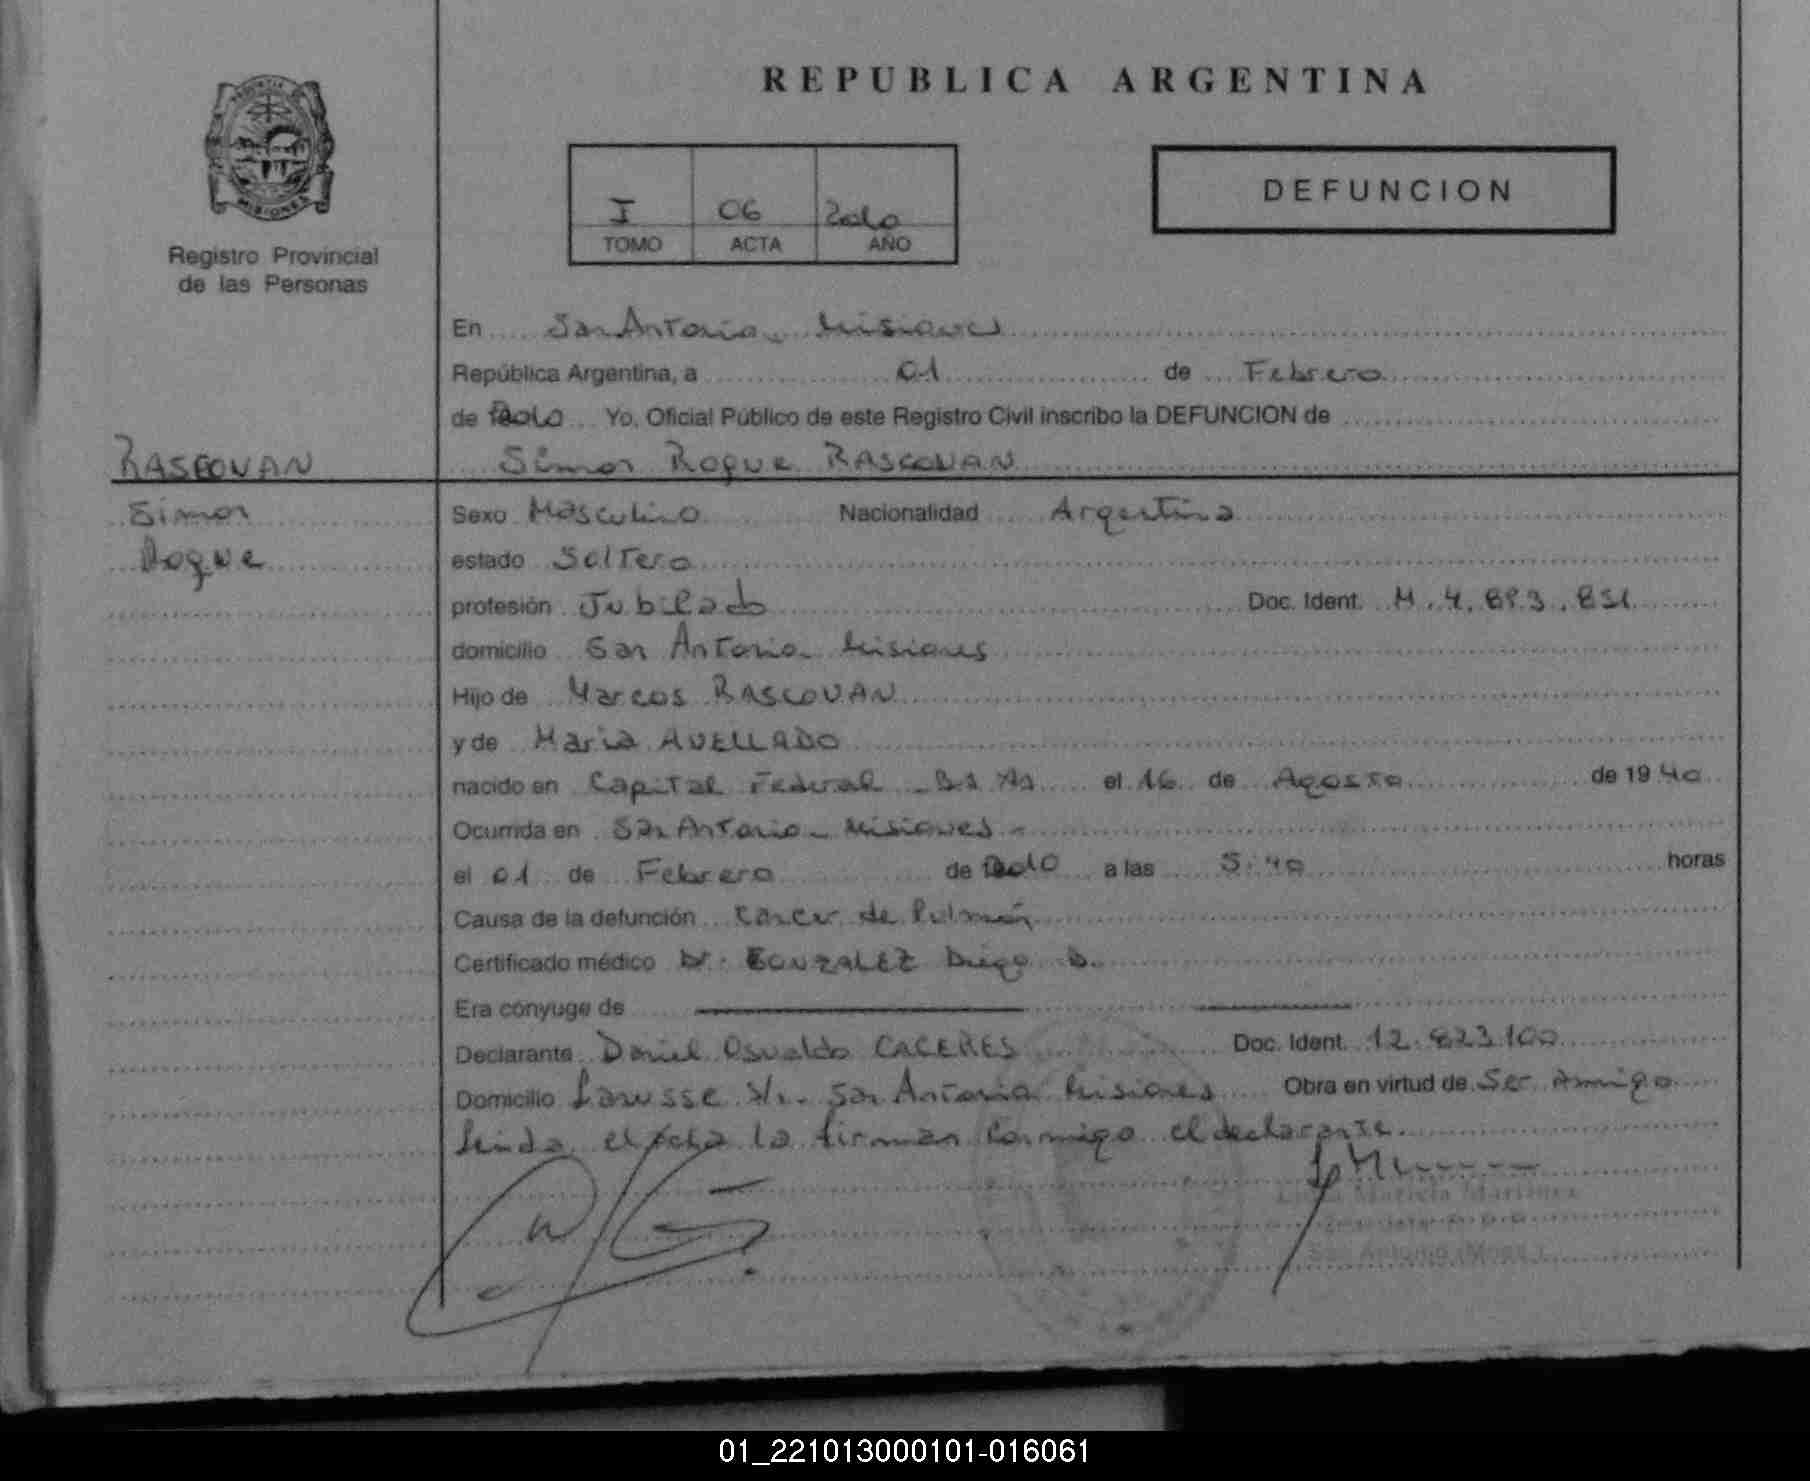 REPUBLICA ARGENTINA
PROVINCIA DE
MISIONES
Registro Provincial
de las Personas
I 06 2010
TOMO ACTA AÑO
DEFUNCION
En San Antonio - Misiones
República Argentina, a 01 de Febrero
de 2010 Yo, Oficial Público de este Registro Civil inscribo la DEFUNCION de
RASCOVAN
Simon Roque RASCOVAN
Simon
Roque
Sexo Masculino Nacionalidad Argentina
estado Soltero
profesión Jubilado Doc. Ident. M. 4. 893. 851
domicilio San Antonio - Misiones
Hijo de Marcos RASCOVAN
y de Maria AVELLADO
nacido en Capital Federal - Bs As el 16 de Agosto de 19 40
Ocurrida en San Antonio - Misiones -
el 01 de Febrero de 2010 a las 5:40 horas
Causa de la defunción Cancer de Pulmón
Certificado médico Dr. GONZALEZ Diego D.
Era cónyuge de
Declarante Daniel Osvaldo CACERES Doc. Ident. 12. 823.100
Domicilio Lanusse s/n. San Antonio Misiones Obra en virtud de Ser Amigo
Leida el acta la firman Conmigo el declarante
Martinez
San Antonio (Mnes.)
01_221013000101-016061